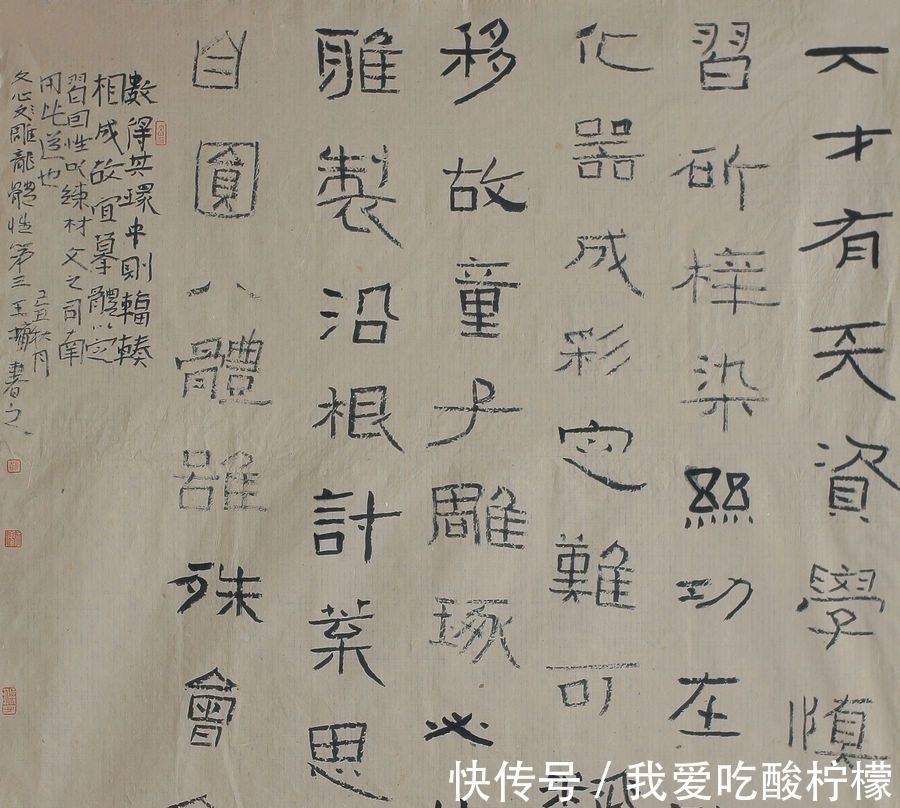 夫才有天資學慎
習斫梓染絲功在
化器成彩定難可
移故童子雕琢必
雅製沿根討葉思
自圓八體雖殊會
數得其環中則輻輳
相成故宜摹體以定
習因性以練材文之司南
用此道也
己丑秋月
文心雕龍體性第三王書之
快传号 / 我爱吃酸柠檬